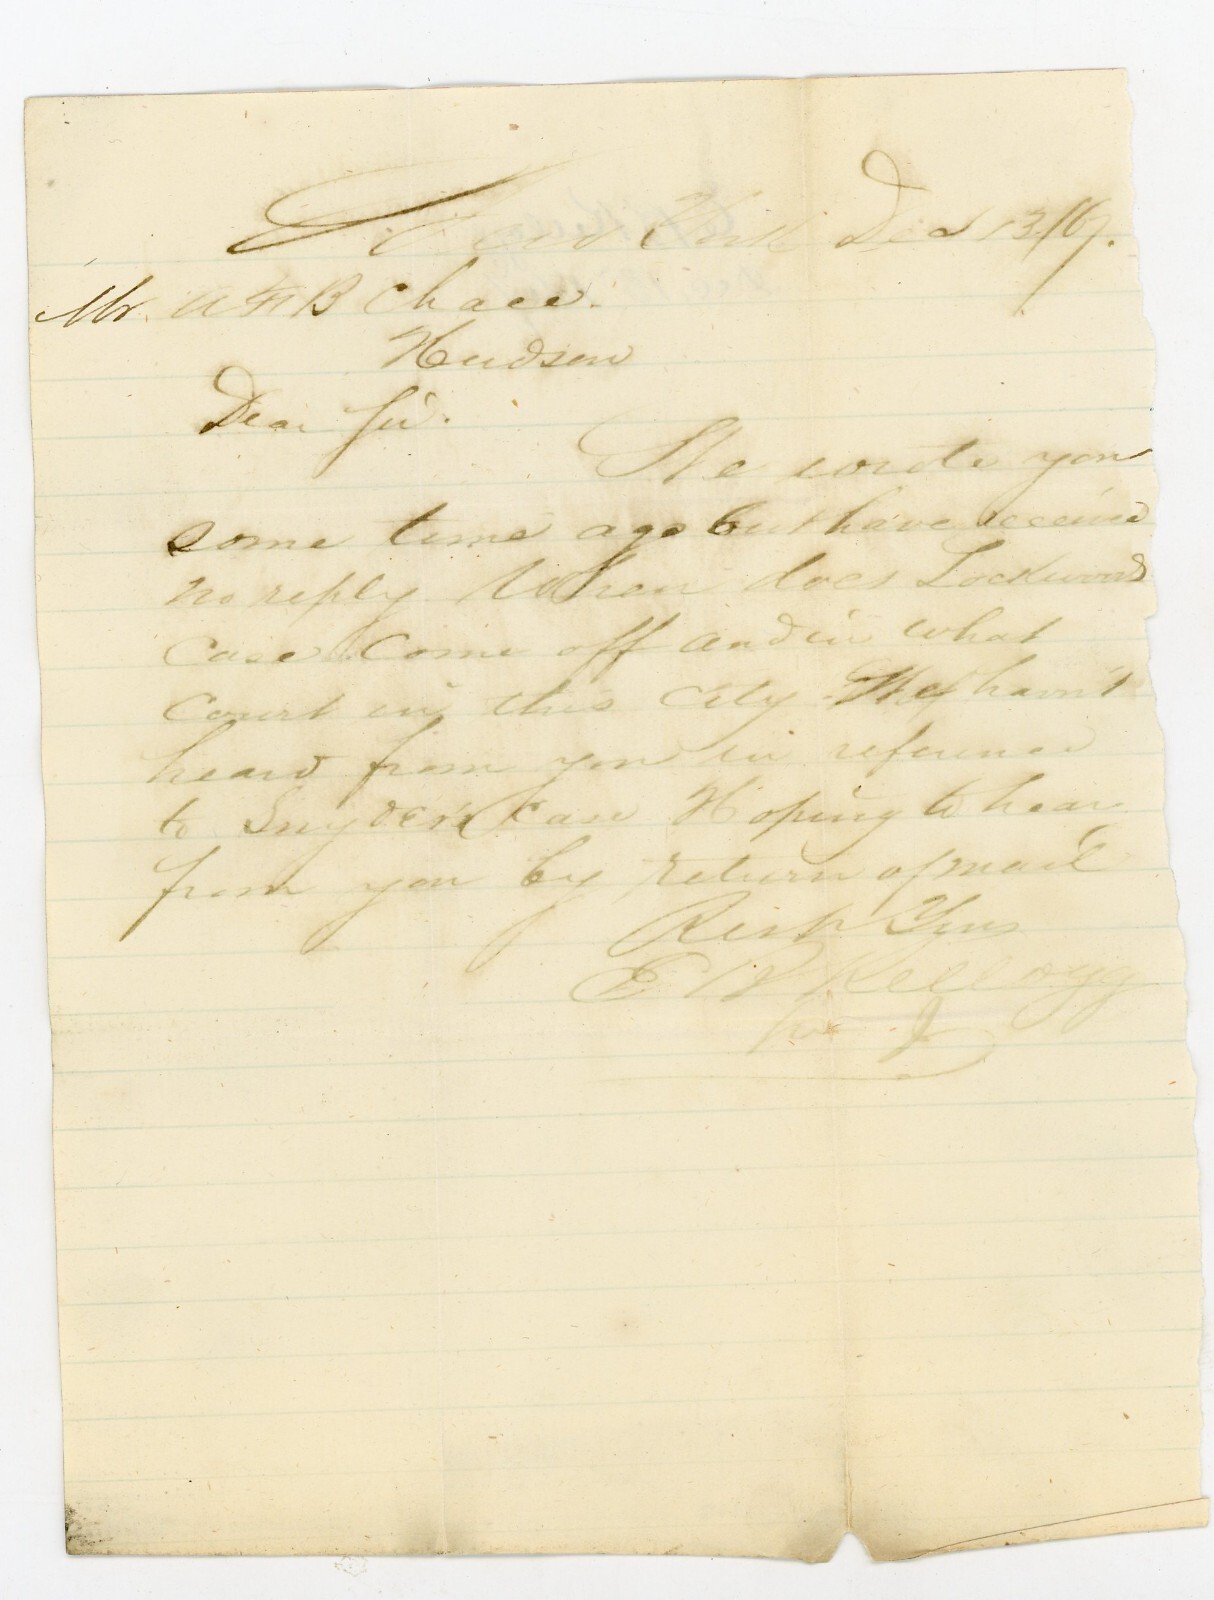 New York Dec 13/67.
Mr. A F B Chace.
Hudson
Dear Sir.
We wrote you
some time ago but have received
no reply When does Lockwood
case come off and in what
court in this city We havn't
heard from you in reference
to Snyder's case Hoping to hear
from you by return of mail
Resp Yours
E W Kellogg